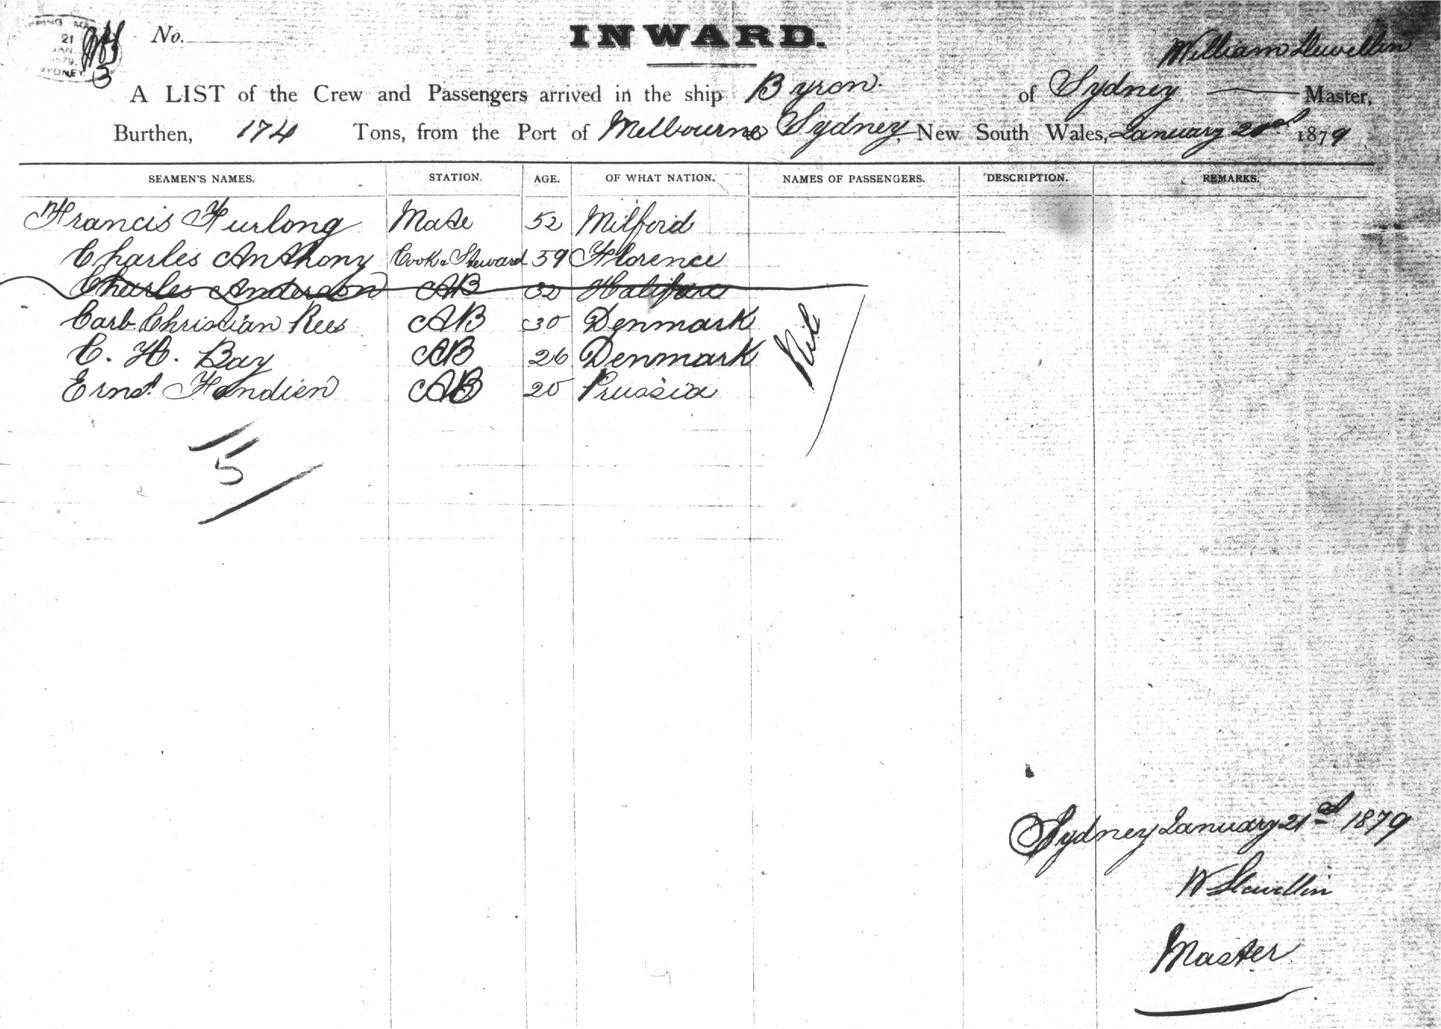 21
SYDNEY
3
No.
INWARD.
William Llewellin
A LIST of the Crew and Passengers arrived in the ship Byron. of Sydney Master,
Burthen, 174 Tons, from the Port of Melbourne Sydney, New South Wales, January 1879
SEAMEN'S NAMES. STATION. AGE. OF WHAT NATION. NAMES OF PASSENGERS. DESCRIPTION. REMARKS.
Francis Furlong Mate 52 Milford
Charles Anthony Cook & Steward 59 Florence
Charles Anderson AB 32 Halifax
Carb Christian Rees AB 30 Denmark
C. H. Bay AB 26 Denmark
Ernst. AB 20 Prussia
Nil
5
Sydney January 21st 1879
W Llewellin
Master